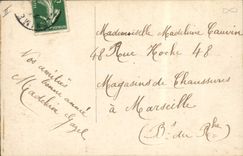 Mademoiselle Madeleine Cauvin
48 Rue Hoche 48
Magasins de Chaussures
à Marseille
(Bes du Rhône)
Vos amitiés
bonne année
Madeleine